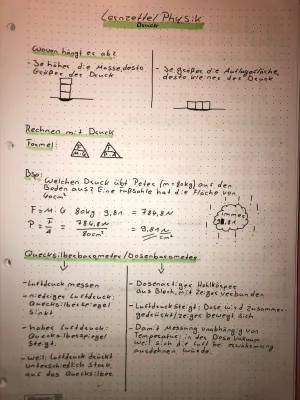 Lernzettel Physik
Druck
Wovon hängt es ab?
- Je höher die Masse, desto
Größer der Druck
- Je größer die Auflagefläche,
desto kleiner der Druck
Rechnen mit Druck
Formel:
F
M·G
F
P·A
Bsp: Welchen Druck übt Peter (m=80kg) aus den
Boden aus? Eine Fußsohle hat die Fläche von
40cm²
F = M·G 80kg · 9,81 = 784,8N
P = F/A = 784,8N / 80cm² = 9,81 N/cm²
immer
9,81
Quecksilberbarometer / Dosenbarometer
- Luftdruck messen
- niedriger Luftdruck:
Quecksilberspiegel
sinkt
- hoher Luftdruck:
Quecksilberspiegel
steigt.
- Weil: Luftdruck drückt
unterschiedlich stark
auf das Quecksilber
- Dosenartiger Hohlkörper
aus Blech, mit Zeiger verbunden
- Luftdruck steigt: Dose wird zusammen-
gedrückt/Zeiger bewegt sich
- Damit Messung unabhängig von
Temperatur: in der Dose Vakuum
weil sich die Luft bei
ausdehnen würde